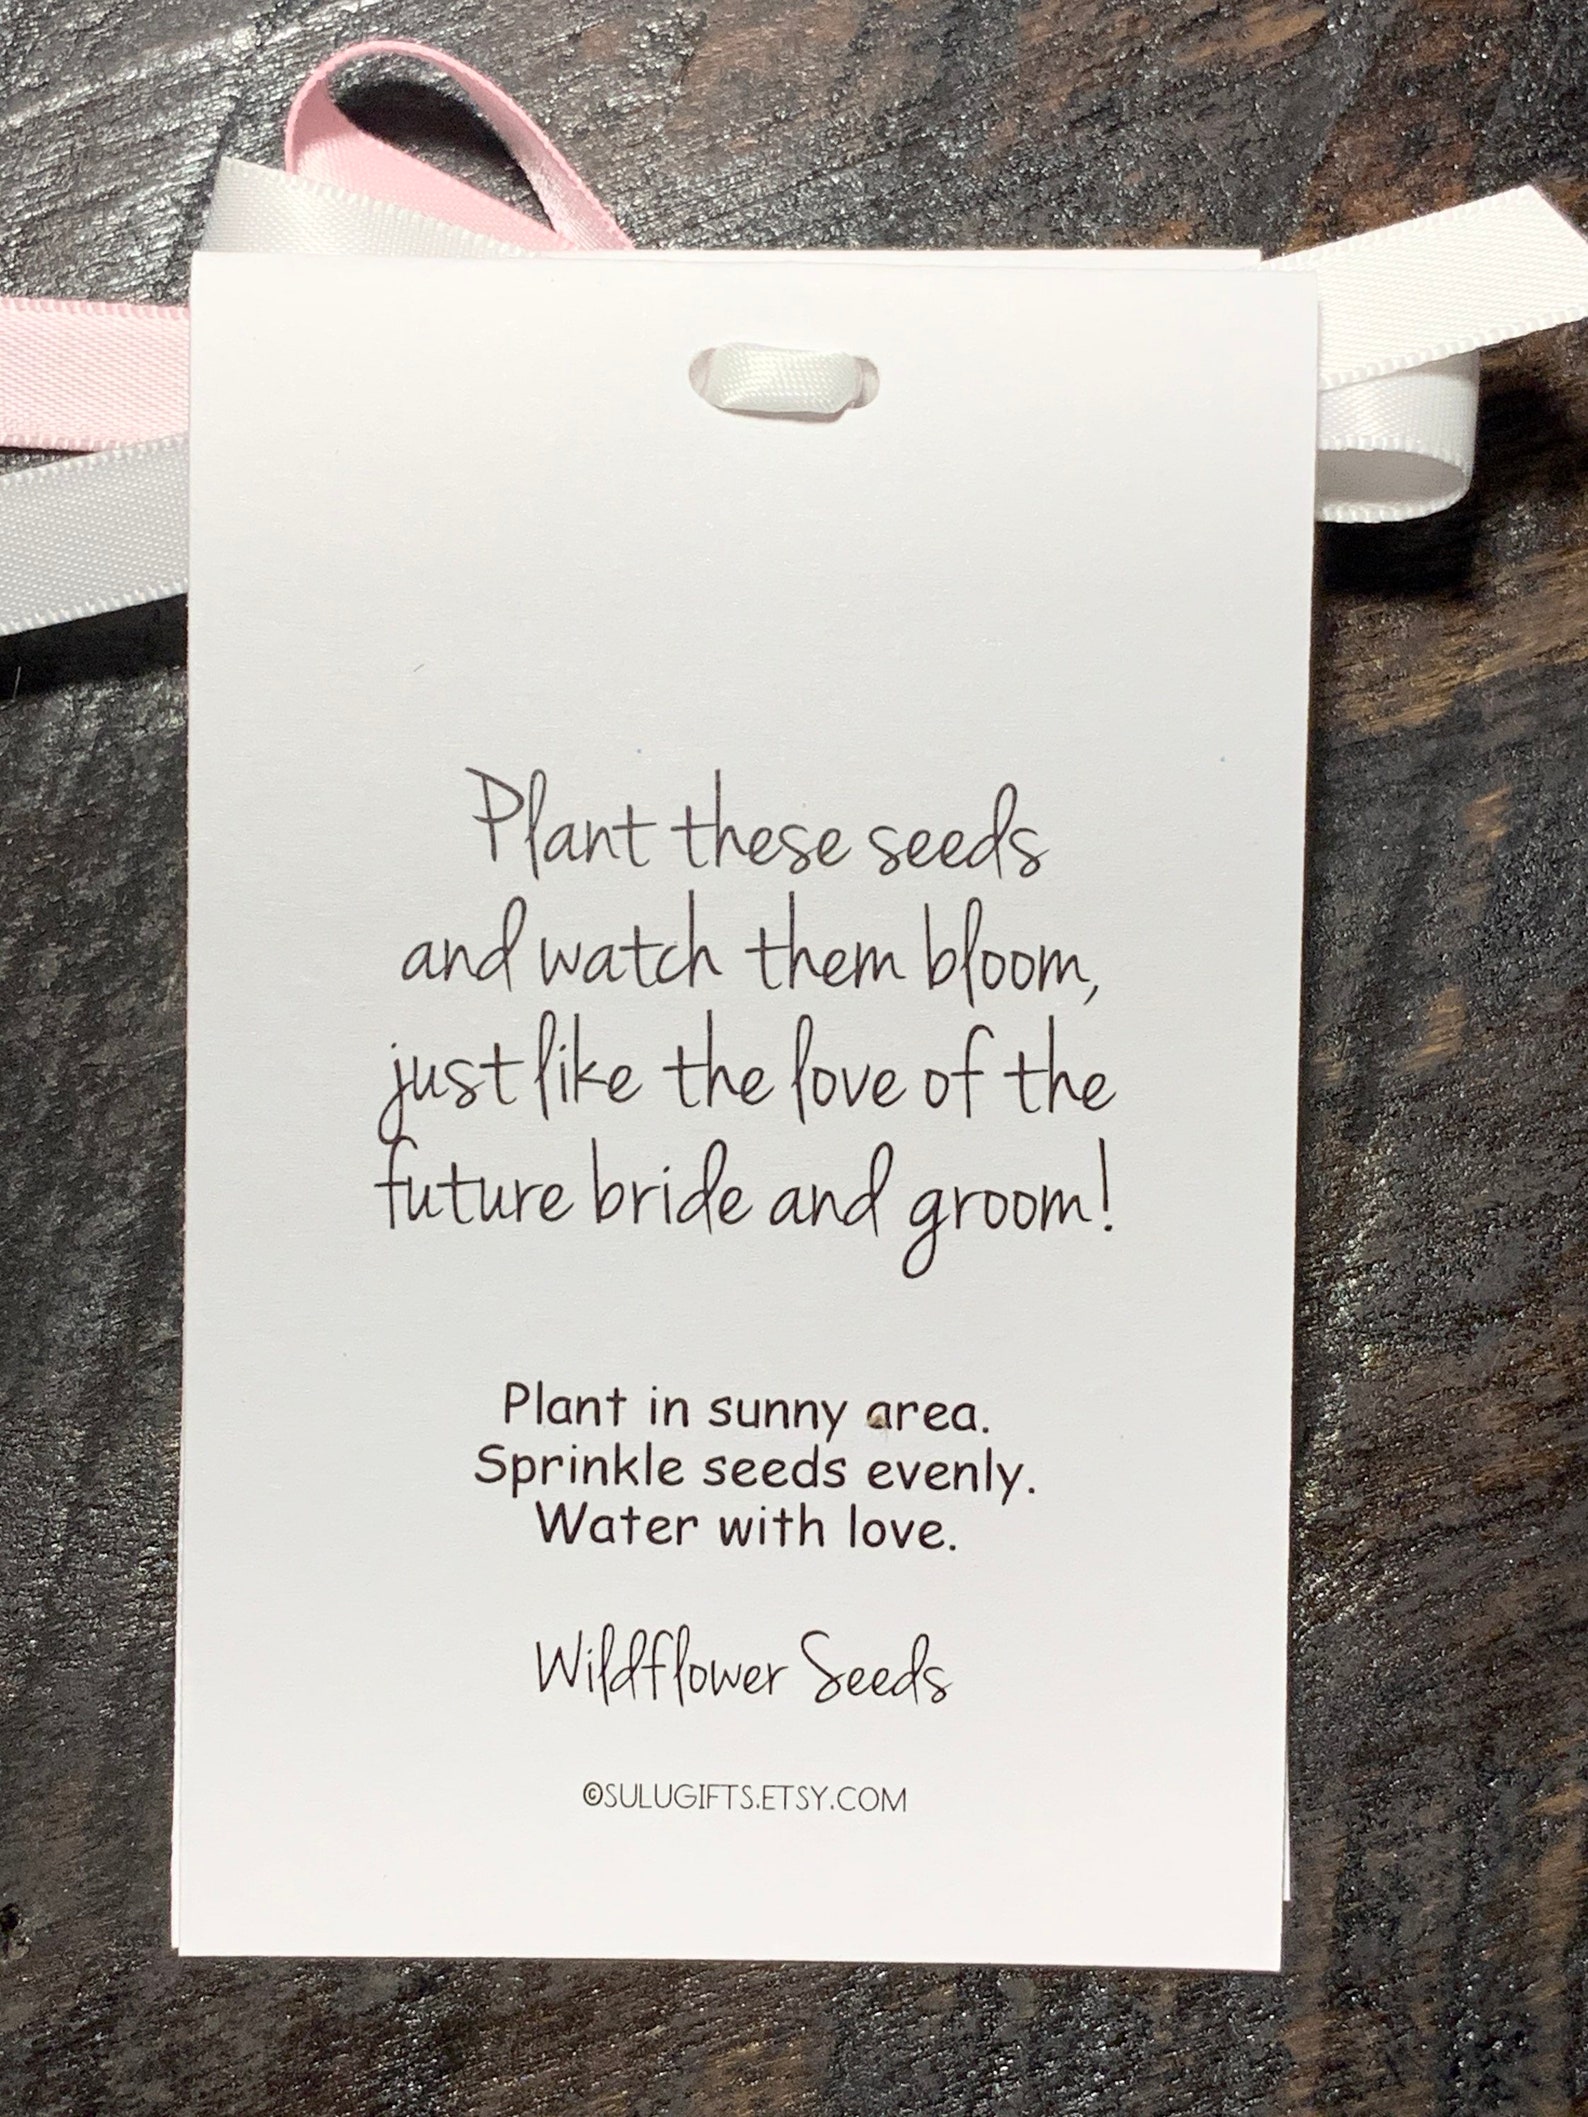 Plant these seeds
and watch them bloom,
just like the love of the
future bride and groom!
Plant in sunny area.
Sprinkle seeds evenly.
Water with love.
Wildflower Seeds
©SULUGIFTS.ETSY.COM